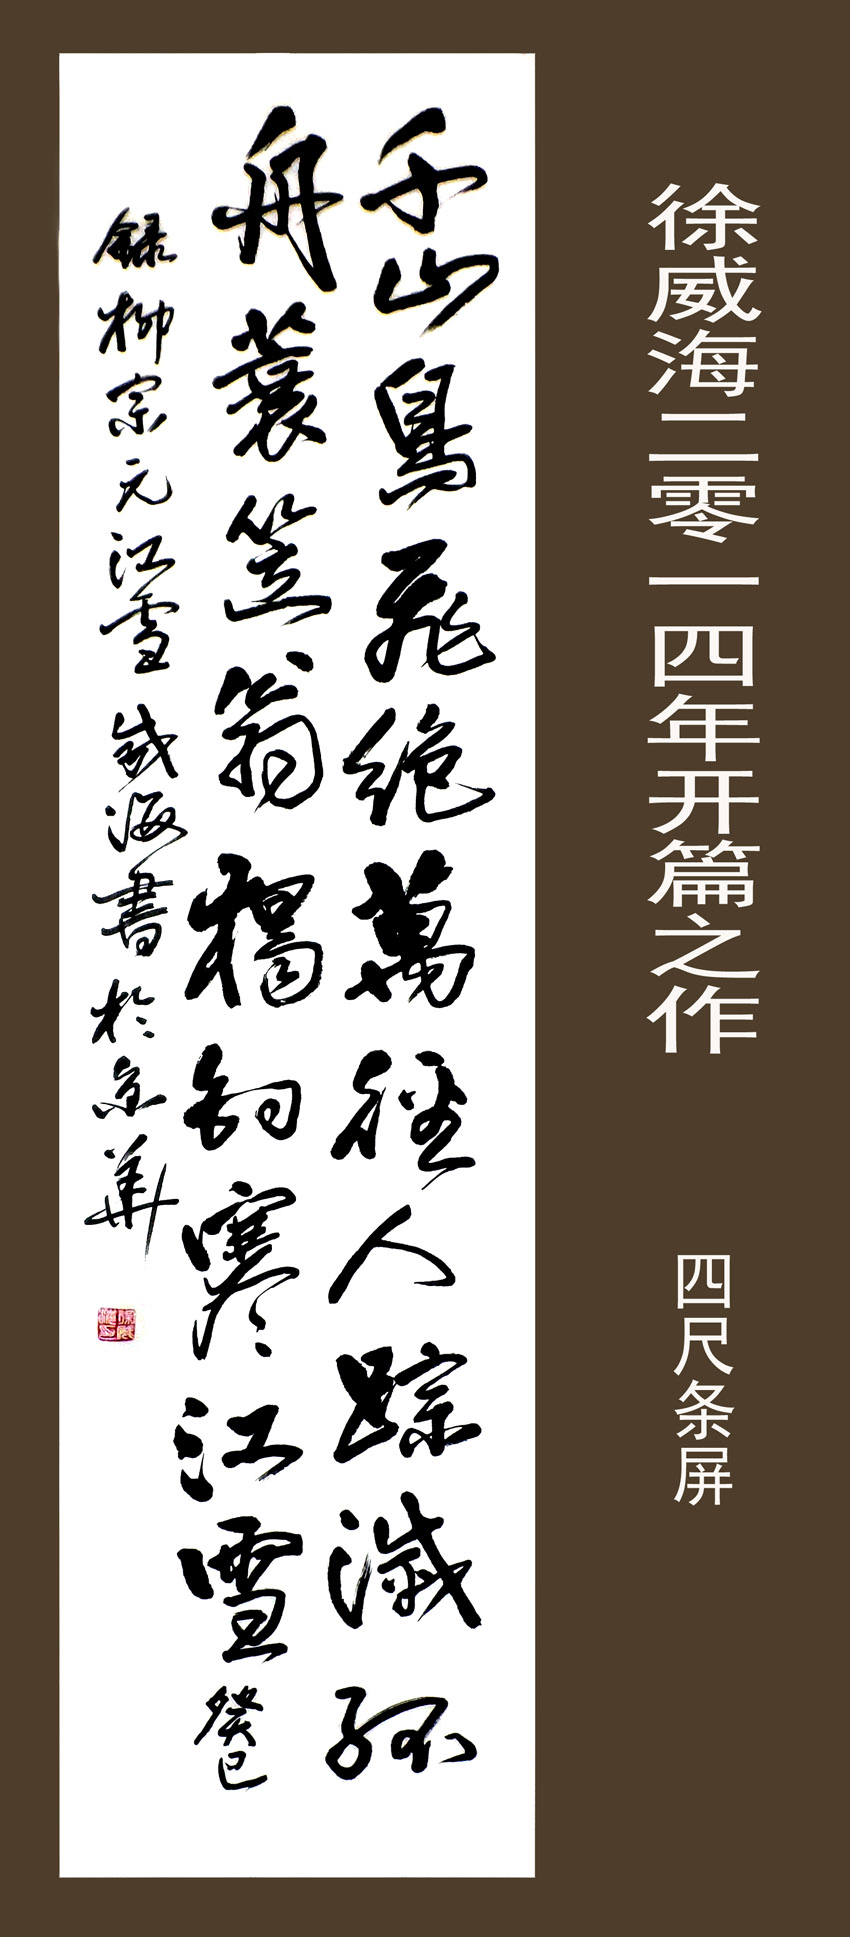 徐威海二零一四年开篇之作
四尺条屏
千山鳥飛絶萬径人踪滅孤
舟蓑笠翁獨钓寒江雪癸巳
録柳宗元江雪威海書於京華